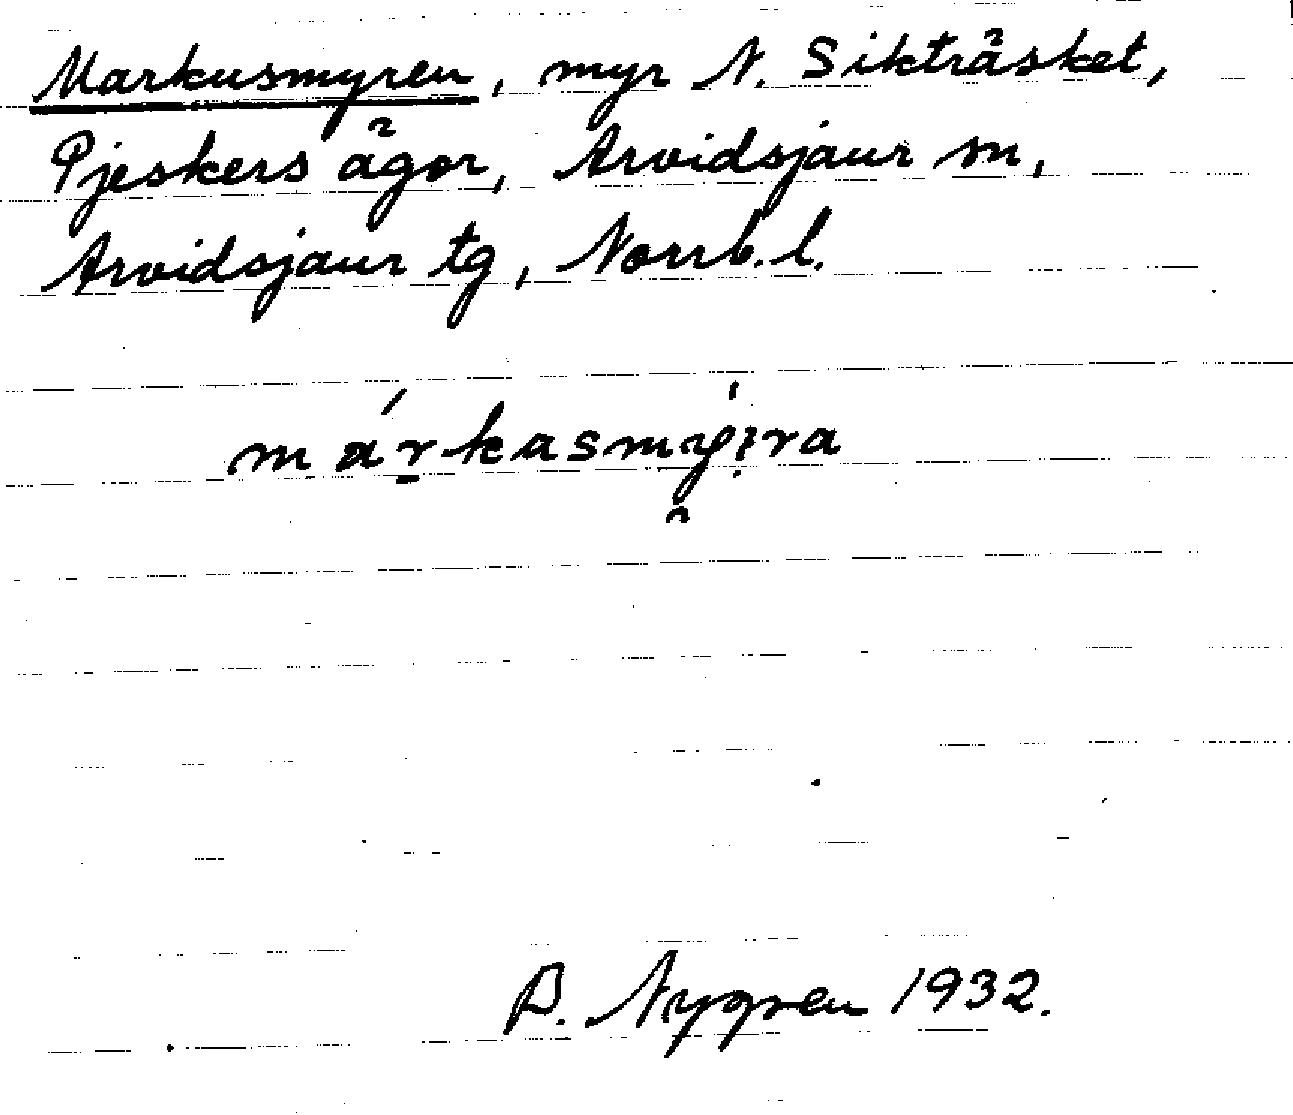 Markusmyren, myr N. Sikträsket,
Pjeskers ägor, Arvidsjaur sn,
Arvidsjaur tg, Norrb. l.
márkasmy̑꞉ra
B. Nygren 1932.